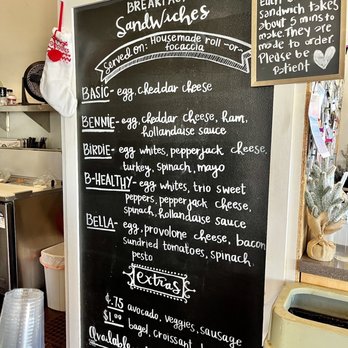 BREAKFAST
Sandwiches
Served on: Housemade roll -or-
focaccia
BASIC- egg, cheddar cheese
BENNIE- egg, cheddar cheese, ham,
hollandaise sauce
BIRDIE- egg whites, pepperjack cheese,
turkey, spinach, mayo
B-HEALTHY- egg whites, trio sweet
peppers, pepperjack cheese,
spinach, hollandaise sauce
BELLA- egg, provolone cheese, bacon
sundried tomatoes, spinach,
pesto
extras
¢.75 avocado, veggies, sausage
$1.00 bagel, croissant,
Available
sandwich takes
about 5 mins to
make. They are
made to order.
Please be
patient